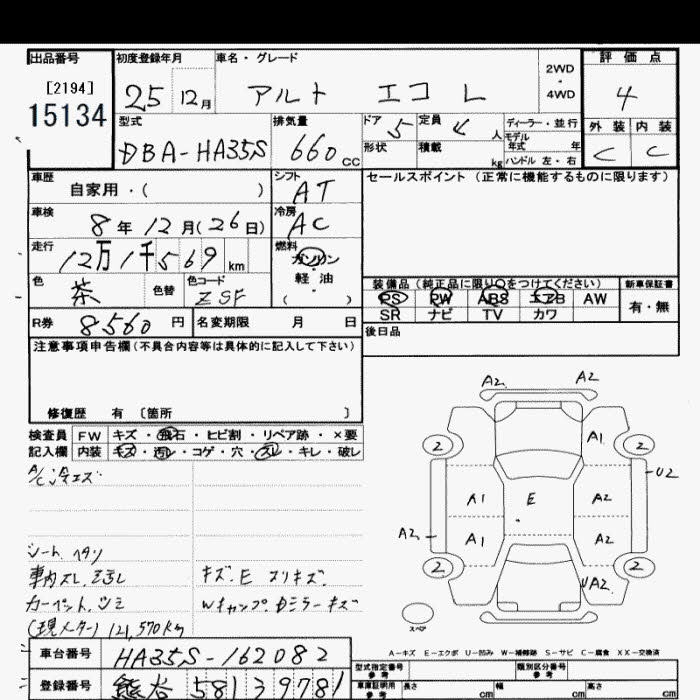 出品番号 初度登録年月 車名・グレード 評価点
[2194]
15134
25 12月 アルト エコ L 2WD・4WD 4
型式 排気量 ドア 5 定員 4人 ディーラー・並行 外装 内装
DBA-HA35S 660cc 形状 積載 kg モデル年式 年 ハンドル 左・右 C C
車歴 シフト セールスポイント (正常に機能するものに限ります)
自家用・( ) AT
車検 冷房
8年12月(26日) AC
走行 燃料
12万1千569km ガソリン
軽油
( )
色 茶 色替 色コード ZSF
装備品 (純正品に限り○をつけてください) 新車保証書
PS PW ABS エアB AW 有・無
SR ナビ TV カワ
R券 8560円 名変期限 月 日 後日品
注意事項申告欄(不具合内容等は具体的に記入して下さい)
修復歴 有 〔箇所 〕
検査員 FW キズ・飛石・ヒビ割・リペア跡・×要
記入欄 内装 キズ・汚レ・コゲ・穴・スレ・キレ・破レ
A/C冷エズ
シート ヘタリ
車内スレ キズ.E スリキズ
カーペット、シミ Wキャップ Dミラーキズ
(現メーター) 121,570km
A2 A2
A1
2 2
U2
A1 E A2
A2
A1 A2
2 2
UA2
スペア
A-キズ E-エクボ U-凹み W-補修跡 S-サビ C-腐食 XX-交換済
車台番号 HA35S-162082
登録番号 熊谷 581 3 9781
型式指定番号 参考 類別区分番号 参考
車庫証明用 参考 長さ cm 幅 cm 高さ cm